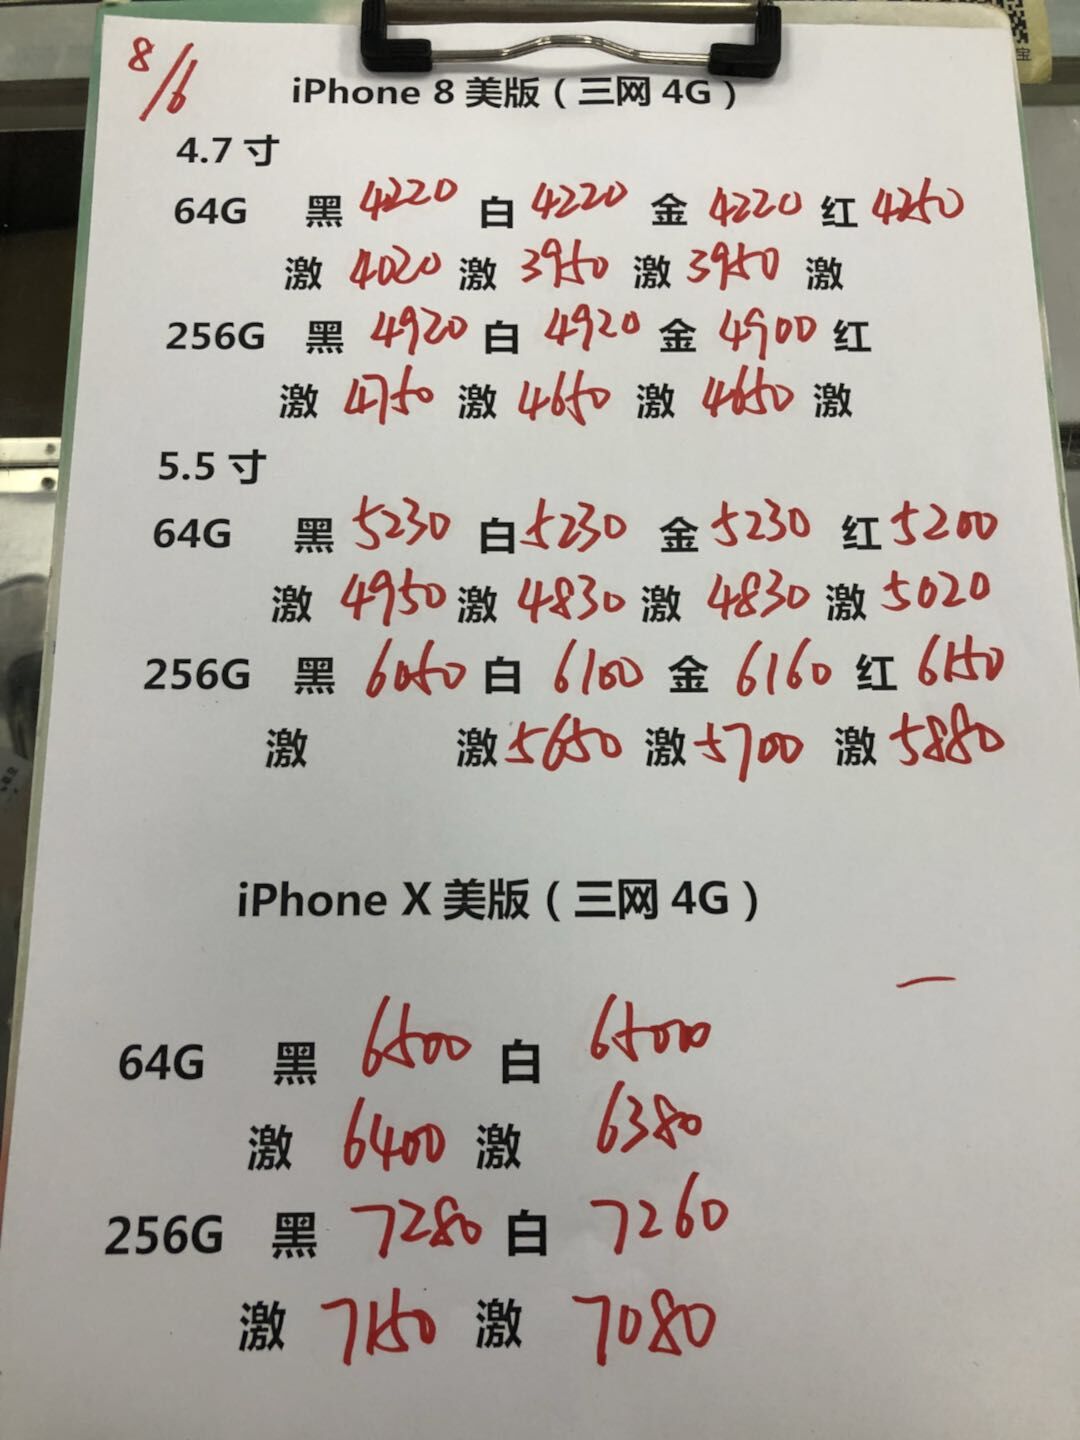 8/6
iPhone 8 美版（三网 4G）
4.7 寸
64G 黑 4220 白 4220 金 4220 红 4250
激 4020 激 3950 激 3950 激
256G 黑 4920 白 4920 金 4900 红
激 4750 激 4650 激 4650 激
5.5 寸
64G 黑 5230 白 5230 金 5230 红 5200
激 4950 激 4830 激 4830 激 5020
256G 黑 6050 白 6100 金 6160 红 6150
激 激 5650 激 5700 激 5880
iPhone X 美版（三网 4G）
64G 黑 6500 白 6500
激 6400 激 6380
256G 黑 7280 白 7260
激 7150 激 7080
宝